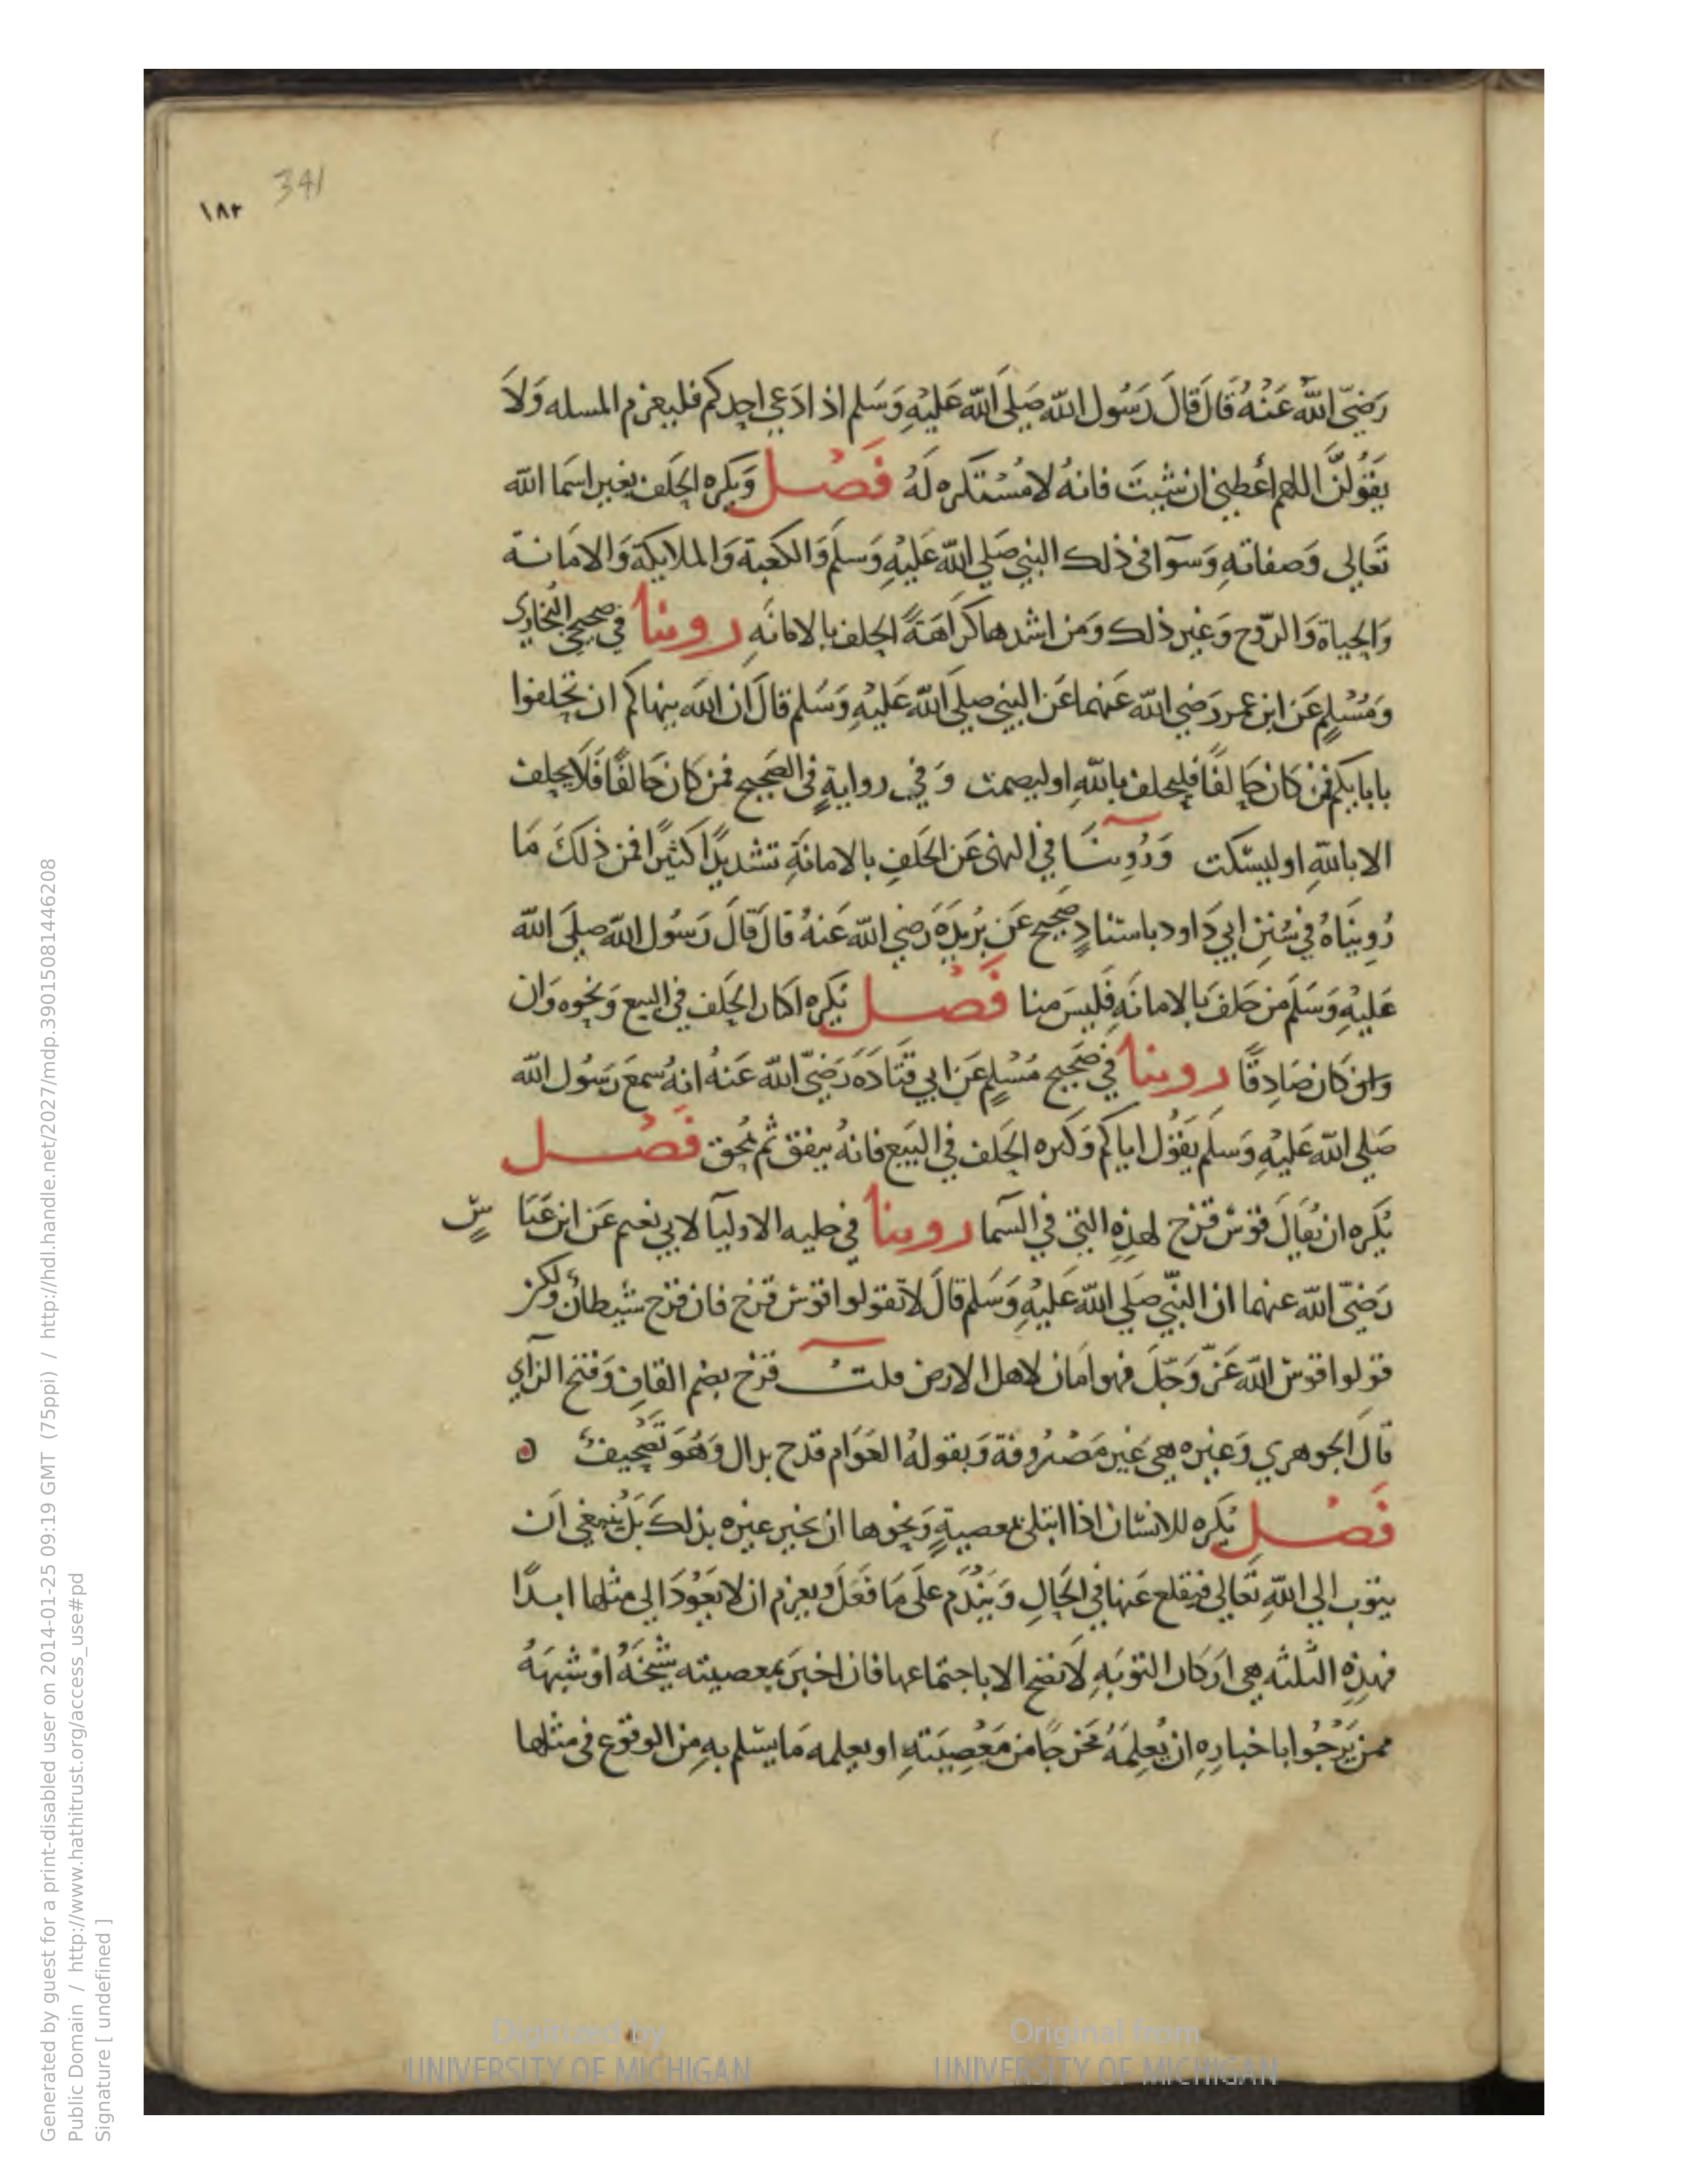 341
١٨٣
رَضِيَ اللهُ عَنْهُ قَالَ قَالَ رَسُول الله صَلَّى اللهُ عَليْهِ وَسَلم اذا دَعي احدكم فليعزم المسله وَلاَ
يَقُولَنَّ اللهم أعْطِني ان شيتَ فانهُ لا مُسْتكره لَهُ فَصْل وَيكره الحَلف بغير اسمَا الله
تَعَالي وَصفاتهِ وَسوَآ في ذلك النبي صَلي الله عَليْهِ وَسلم وَالكعبَة وَالملايكة وَالامَانة
وَالحياة وَالرّوح وَغير ذلك وَمن اشدها كرَاهَةً الحلف بالامانَه روينا في صحيحي البُخاري
وَمُسْلمٍ عَن ابن عمر رَضي الله عَنهما عَن النبي صلي الله عَليْهِ وَسَلم قالَ ان اللهَ ينهاكم ان تحلفوا
بابايكم فمَنْ كان حَالفًا فليحلف باللهِ او ليصمت وَفي روايةٍ في الصَحيح فمن كان حَالفًا فَلا يحلف
الا باللهِ او ليسْكت وَرُوِينَا في النهى عَن الحَلفِ بالامانَةِ تشديدًا كثيرًا فمن ذلكَ مَا
رُوِينَاهُ في سُنَن ابي دَاود باسْنادٍ صَحيح عَن بُرَيْدَةَ رَضي الله عَنهُ قالَ قالَ رَسُول الله صلَى الله
عَليْهِ وَسَلم مَن حَلفَ بالامانَهِ فَليسَ منا فَصْل يُكره اكثار الحَلف في البيع وَنحوه وَان
وَان كان صَادِقًا روينا في صَحيح مُسْلمٍ عَن ابي قَتَادَةَ رَضيَ الله عَنهُ انهُ سمعَ رَسُول الله
صَلي الله عَليْهِ وَسَلم يَقُول اياكم وَكثره الحَلف في البَيع فانهُ ينفق ثم يمحق فَصْل
يُكره ان يُقَالَ قوْسُ قزح لهذهِ التي في السَما روينا في حليه الاوليَآ لابي نعيم عَن ابن عَبَا سٍ
رَضيَ الله عنهما ان النَّبي صَلي الله عَليْهِ وَسَلم قالَ لا تقولوا قوْس قزح فان قزح شيطانٌ ولكن
قولوا قوْس الله عَزّ وَجَلَّ فهو امَان لاهل الارض قلت قزح بضم القافِ وَفتح الزاي
قالَ الجوهري وَغيره هيَ غَير مَصْرُوفة وَيقولهُ العَوَام قدح بدال وَهُوَ تَصْحيفٌ ه
فَصْل يُكره للانسْان اذا ابتلي بمعصيةٍ وَنحوها ان يخبر غيره بذلكَ بَل يَنبَغي اَن
يتوبَ الي اللهِ تَعَالي فيَقلع عَنها في الحَالِ وَيَنْدَم عَلَى مَا فَعَلَ ويعزم ان لا يَعُوْدَ الي مثلها ابدًا
فهذهِ الثلثه هي ارَكان التوبَهِ لا تَصح الا باجتماعها فان اخبَرَ بمعصيته شَيْخَهُ اوْ شبهَهُ
ممن يَرْجُوا باخبارِهِ ان يُعلِمَهُ مَخرَجًا من مَعْصِيَتهِ او يعلمه مَا يسْلم بهِ مِن الوقوع في مثلها